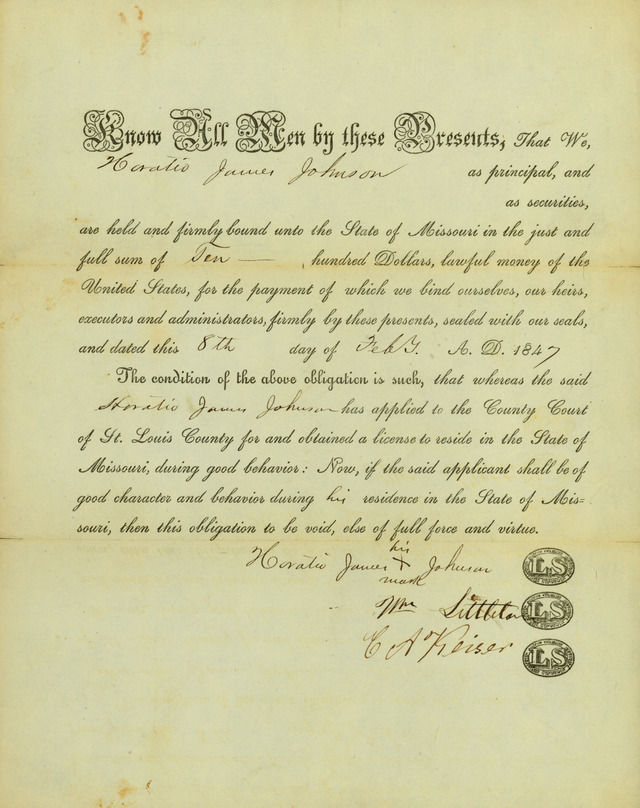 Know All Men by these Presents, That We,
Horatio James Johnson as principal, and
as securities,
are held and firmly bound unto the State of Missouri in the just and
full sum of Ten — hundred Dollars, lawful money of the
United States, for the payment of which we bind ourselves, our heirs,
executors and administrators, firmly by these presents, sealed with our seals,
and dated this 8th day of Feby. A. D. 1847
The condition of the above obligation is such, that whereas the said
Horatio James Johnson has applied to the County Court
of St. Louis County for and obtained a license to reside in the State of
Missouri, during good behavior: Now, if the said applicant shall be of
good character and behavior during his residence in the State of Mis=
souri, then this obligation to be void, else of full force and virtue.
his
Horatio James X Johnson LS
mark
Wm Littleton LS
C A Keiser LS